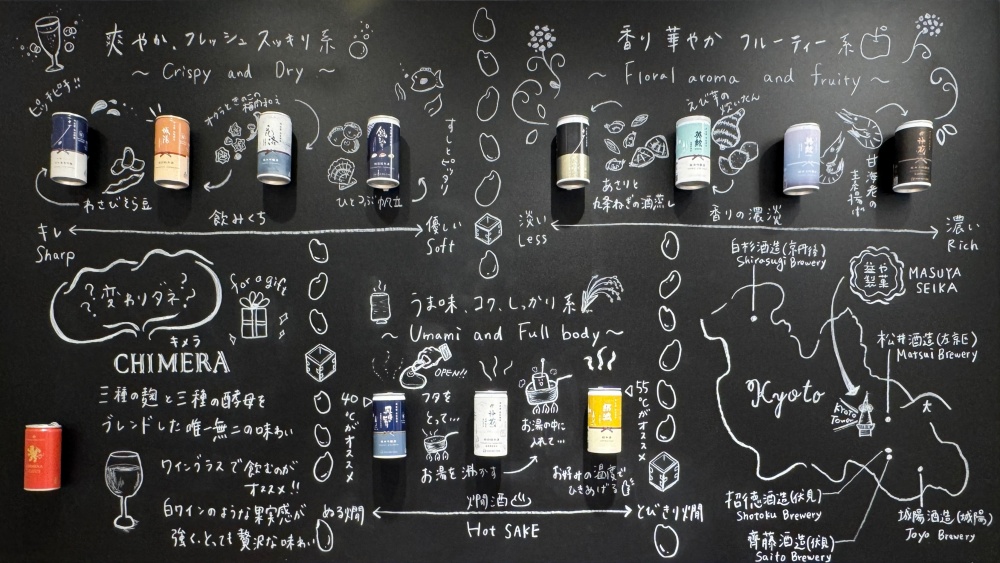 爽やか、フレッシュスッキリ系
~ Crispy and Dry ~
ピッチピチ!!
オクラときのこの
梅肉和え
すしとピッタリ
わさびそら豆
ひとつぶ帆立
飲みくち
キレ
Sharp
優しい
Soft
香り華やか フルーティー系
~ Floral aroma and fruity ~
えび芋の
炊いたん
あさりと
九条ねぎの酒蒸し
甘海老の
素揚げ
香りの濃淡
淡い
Less
濃い
Rich
??変わりダネ??
for a gift
キメラ
CHIMERA
三種の麹と三種の酵母を
ブレンドした唯一無二の味わい
ワイングラスで飲むのが
オススメ!!
白ワインのような果実感が
強く、とっても贅沢な味わい
うま味、コク、しっかり系
~ Umami and Full body ~
OPEN!!
40℃がオススメ
フタを
とって…
お湯を沸かす
お湯の中に
入れて…
55℃がオススメ
お好みの温度で
ひきあげる
燗酒
ぬる燗
とびきり燗
Hot SAKE
白杉酒造(京丹後)
Shirasugi Brewery
益や
製菓
MASUYA
SEIKA
松井酒造(左京区)
Matsui Brewery
Kyoto
Kyoto
Tower
大
招徳酒造(伏見)
Shotoku Brewery
城陽酒造(城陽)
Joyo Brewery
齊藤酒造(伏見)
Saito Brewery